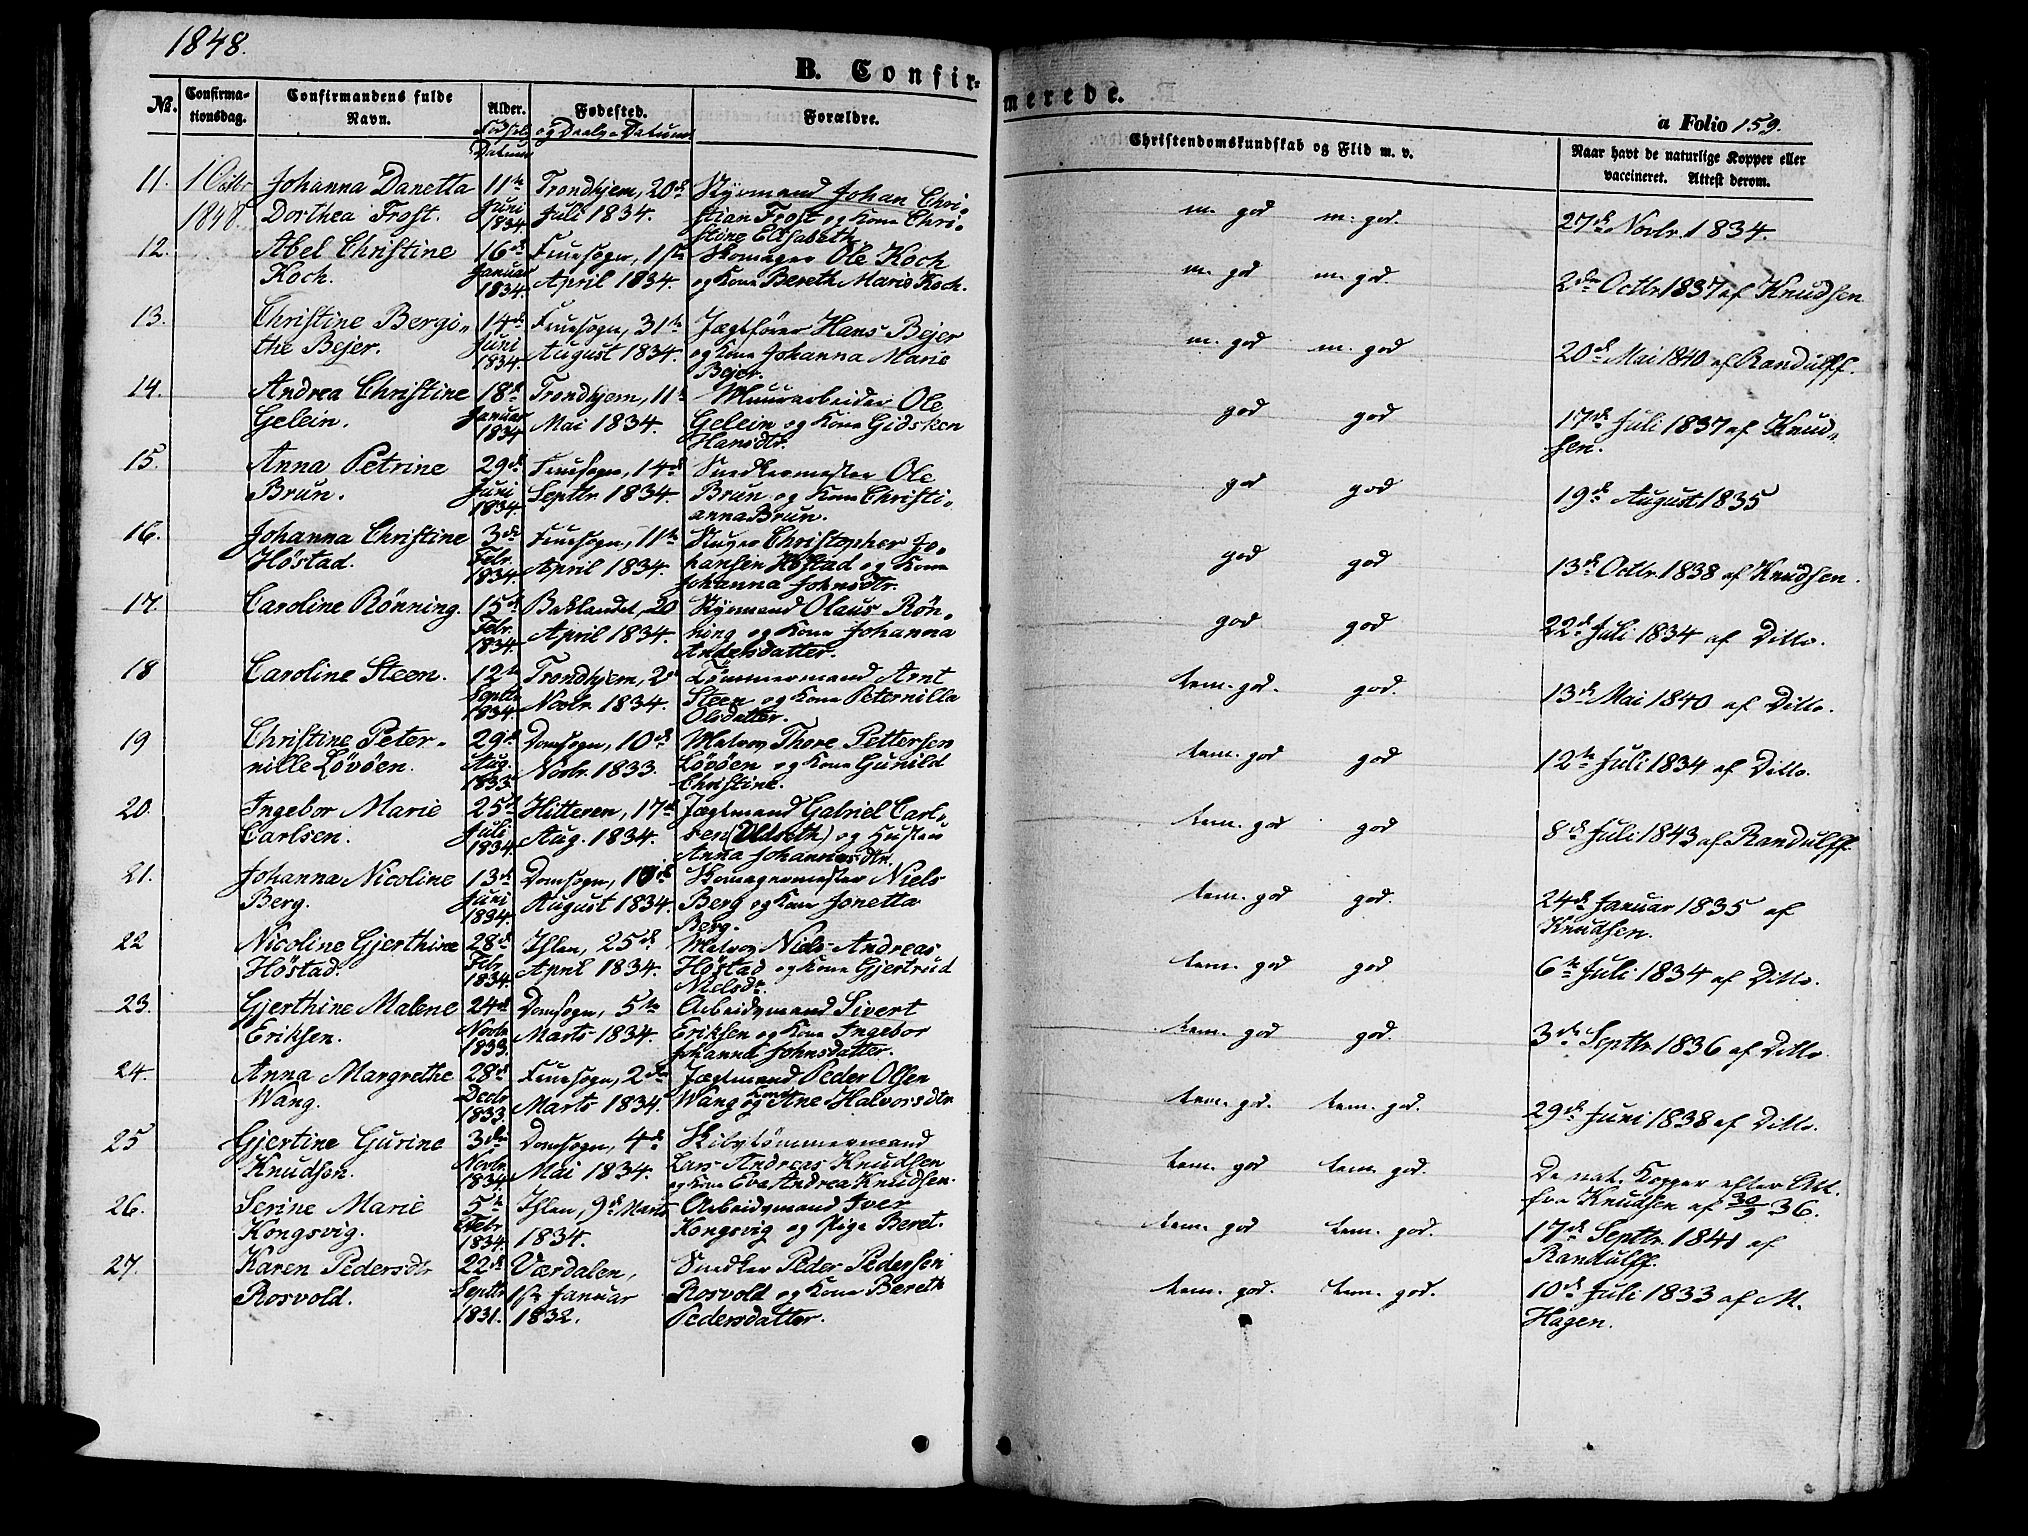 1848.
B. Confir-
merede.
a Folio 159.
No. Confirma-
tionsdag.
Confirmandens fulde
Navn.
Alder.
Fødsels
Datum
Fødested.
og Daabs-Datum
Forældre.
Christendomskundskab og Flid m. v.
Naar havt de naturlige Kopper eller
vaccineret. Attest derom.
11. 1 Octbr Johanna Danetta 11te Trondhjem, 20de Styrmand Johan Chri-
1848. Dorthea Frost. Juni Juli 1834. stian Frost og Kone Chri-
1834. stine Elisabeth
m. god m. god. 27de Novbr. 1834.
12. Abel Christine 16de Fruesogn, 1ste Skomager Ole Koch
Koch. Januar April 1834. og Kone Bereth Marie Koch.
1834.
m. god m. god. 2den Octbr 1837 af Knudsen
13. Christine Bergi- 14de Fruesogn, 31te Jægtfører Hans Bejer
the Bejer. Juni August 1834. og Kone Johanna Marie
1834. Bejer.
m. god m. god 20de Mai 1840 af Randulff.
14. Andrea Christine 18de Trondhjem, 11te Muurarbeider Ole
Gelein. Januar Mai 1834. Gelein og Kone Gidsken
1834 Hansdtr.
god god 17de Juli 1837 af Knud-
sen.
15. Anna Petrine 29de Fruesogn, 14de Snedkermester Ole
Brun. Juni Septbr 1834. Brun og Kone Christi-
1834. anna Brun.
god god 19de August 1835
16. Johanna Christine 3de Fruesogn, 11te Stuer Christopher Jo-
Höstad. Febr. April 1834. hansen Höstad og Kone
1834. Johanna Johnsdtr.
god god 13de Octbr. 1838 af Knudsen.
17. Caroline Rönning. 15de Baklandet, 20 Styrmand Olaus Rön-
Febr. April 1834. ning og Kone Johanna
1834. Andersdatter.
god god 22de Juli 1834 af Ditto.
18 Caroline Steen. 12te Trondhjem, 2de Tömmermand Arnt
Septbr Novbr. 1834. Steen og Kone Peternilla
1834. Olsdatter.
tem. god. god. 13de Mai 1840 af Ditto.
19 Christine Peter- 29de Domsogn, 10de Matros Thore Pettersen
nille Lövöen. Aug. Novbr. 1833. Lövöen og Kone Gunild
1833 Christine.
tem. god god 12te Juli 1834 af Ditto.
20. Ingebor Marie 25de Hitteren, 17de Jægtmand Gabriel Carl-
Carlsen. Juli Aug. 1834. sen (Uldseth) og Hustru
1834. Anna Johannesdtr.
tem. god god 8de Juli 1843 af Randulff
21. Johanna Nicoline 13de Domsogn, 10de Skomagermester Niels
Berg. Juni August 1834. Berg og Kone Jonetta
1834. Berg.
tem. god god. 24de Januar 1835 af
Knudsen.
22 Nicoline Gjerthine 28de Ihlen, 25de Matros Niels Andreas
Höstad. Febr. April 1834. Höstad og Kone Gjertrud
1834. Nielsdr.
tem. god god 6te Juli 1834 af Ditto.
23. Gjerthine Malene 24de Domsogn, 5te Arbeidsmand Sivert
Eriksen. Novbr Marts 1834. Eriksen og Kone Ingebor
1833. Johanna Johnsdatter.
tem. god god. 3de Septbr. 1836 af Ditto
24. Anna Margrethe 28de Fruesogn, 2den Jægtmand Peder Olsen
Wang. Decbr Marts 1834. Wang og Kone Ane Halvorsdtr
1833.
tem. god. tem. god. 29de Juni 1838 af Ditto.
25 Gjertine Gurine 3die Domsogn, 4de Skibstömmermand
Knudsen. Novbr. Mai 1834. Lars Andreas Knudsen
1834. og Kone Eva Andrea Knudsen.
tem. god tem. god. De nat. Kopper efter Att.
fra Knudsen af 30/9 36.
26. Serine Marie 5te Ihlen, 9de Marts Arbeidsmand Iver
Kongsvig. Febr 1834. Kongsvig og Pige Beret.
1834.
tem. god tem. god. 17de Septbr. 1841 af
Randulff.
27. Karen Pedersdtr 22de Værdalen, Snedker Peder Pedersen
Rosvold. Septbr 1ste Januar Rosvold og Kone Bereth
1831. 1832. Pedersdatter.
tem. god. tem. god. 10de Juli 1833 af M.
Hagen.